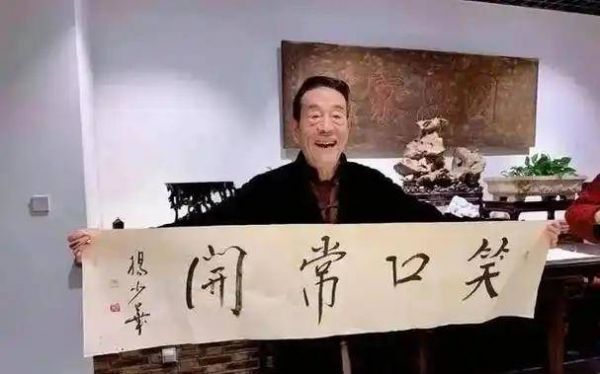 笑口常開
楊少華